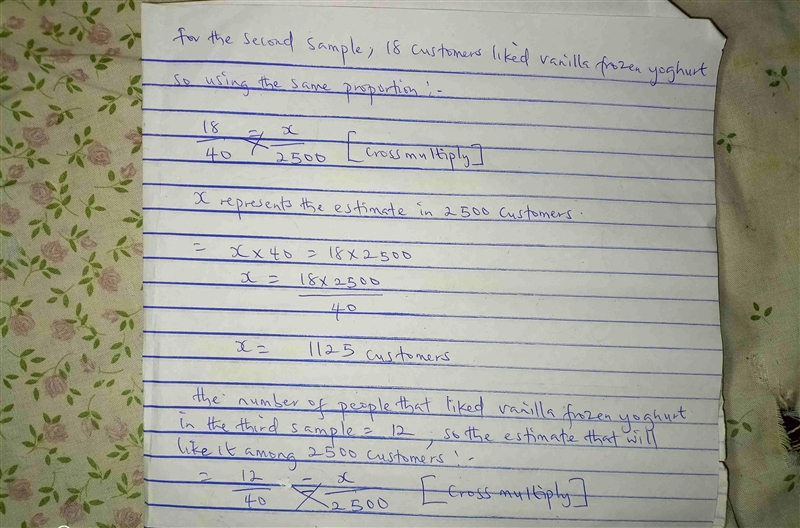 for the second sample, 18 customers liked vanilla frozen yoghurt
so using the same proportion :-
18/40 = x/2500 [cross multiply]
x represents the estimate in 2500 customers.
= x × 40 = 18 × 2500
x = 18 × 2500
40
x = 1125 customers
the number of people that liked vanilla frozen yoghurt
in the third sample = 12, so the estimate that will
like it among 2500 customers :-
= 12/40 = x/2500 [cross multiply]